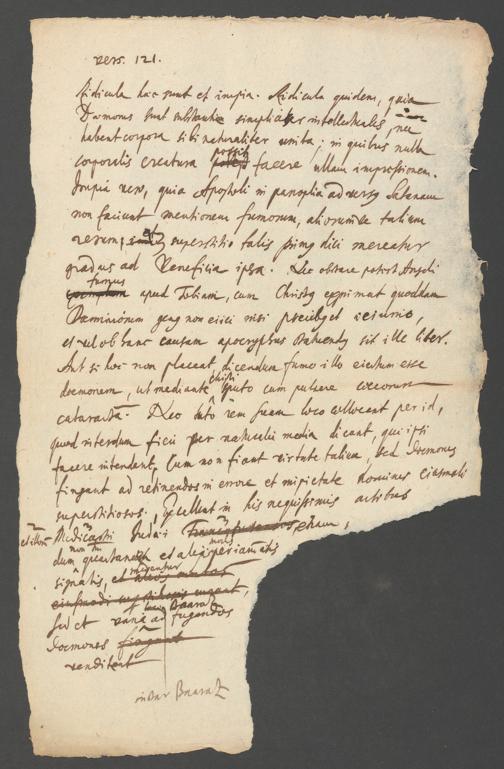 vers. 121.
Ridicula haec sunt et impia. Ridicula quidem, quia
Daemones sunt substantiae simpliciter intellectuales, nec
habent corpora sibi naturaliter unita; in quibus nulla
possit
corporalis creatura potest facere ullam impressionem.
Impia vero, quia Apostoli in panoplia adversus Satanam
non faciunt mentionem fumorum, aliorumve talium
rerum; et superstitio talis primus dici mereatur
gradus ad Veneficia ipsa. Nec obstare potest Angeli
fumus
apud Tobiam, cum Christus exprimat quoddam
Daemoniorum genus non eiici nisi precibus et ieiunio,
et vel ob hanc causam apocryphus habendus sit ille liber.
Aut si hoc non placeat, dicendum fumo illo eiectum esse
Christi
daemonem, ut mediante sputo cum pulvere coecorum
cataracta. Nec tuto rem suam loco collocant per id,
quod interdum fieri per naturalia media dicant, qui ipsi
facere intendant, Cum non fiant virtute talium, sed Daemones
fingant ad retinendos in errore et impietate homines eiusmodi
superstitiosos. Excellunt in his nequissimis artibus
Medicastri Iudaei etiam,
dum et
signatis,
sed et ad fugandos
Daemones fingunt
venditent
instar Baaras